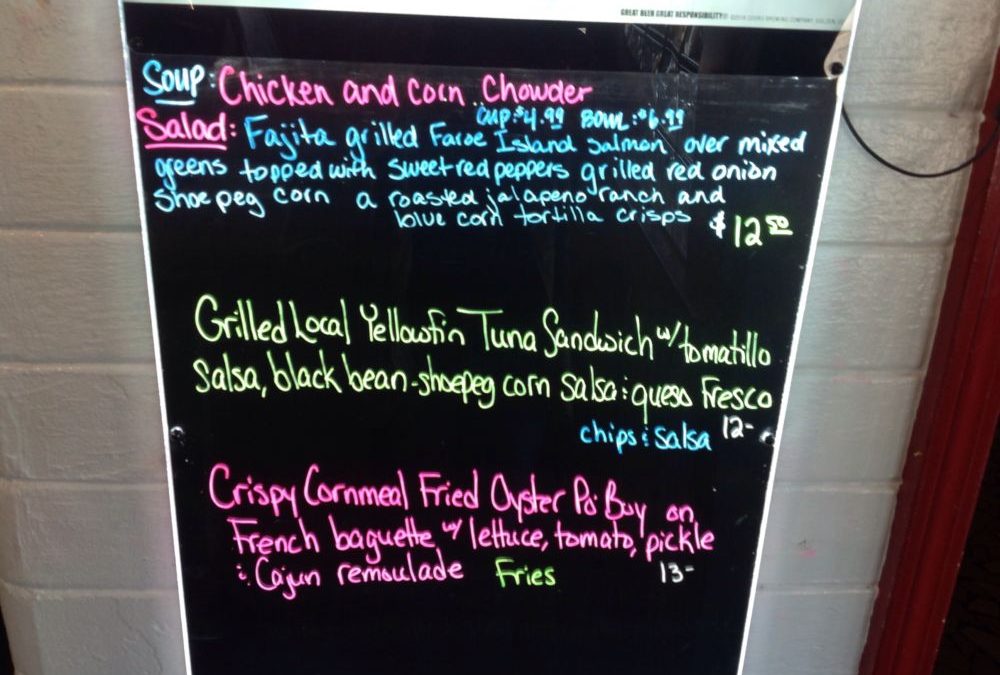 GREAT BEER GREAT RESPONSIBILITY®
Soup: Chicken and Corn Chowder
Cup: $4.99 Bowl: $6.99
Salad: Fajita grilled Faroe Island Salmon over mixed
greens topped with sweet red peppers grilled red onion
Shoepeg corn a roasted jalapeno ranch and
blue corn tortilla crisps $12.50
Grilled Local Yellowfin Tuna Sandwich w/ tomatillo
Salsa, black bean-shoepeg corn salsa & queso Fresco
chips & Salsa 12-
Crispy Cornmeal Fried Oyster Po Boy on
French baguette w/ lettuce, tomato, pickle
& Cajun remoulade Fries 13-